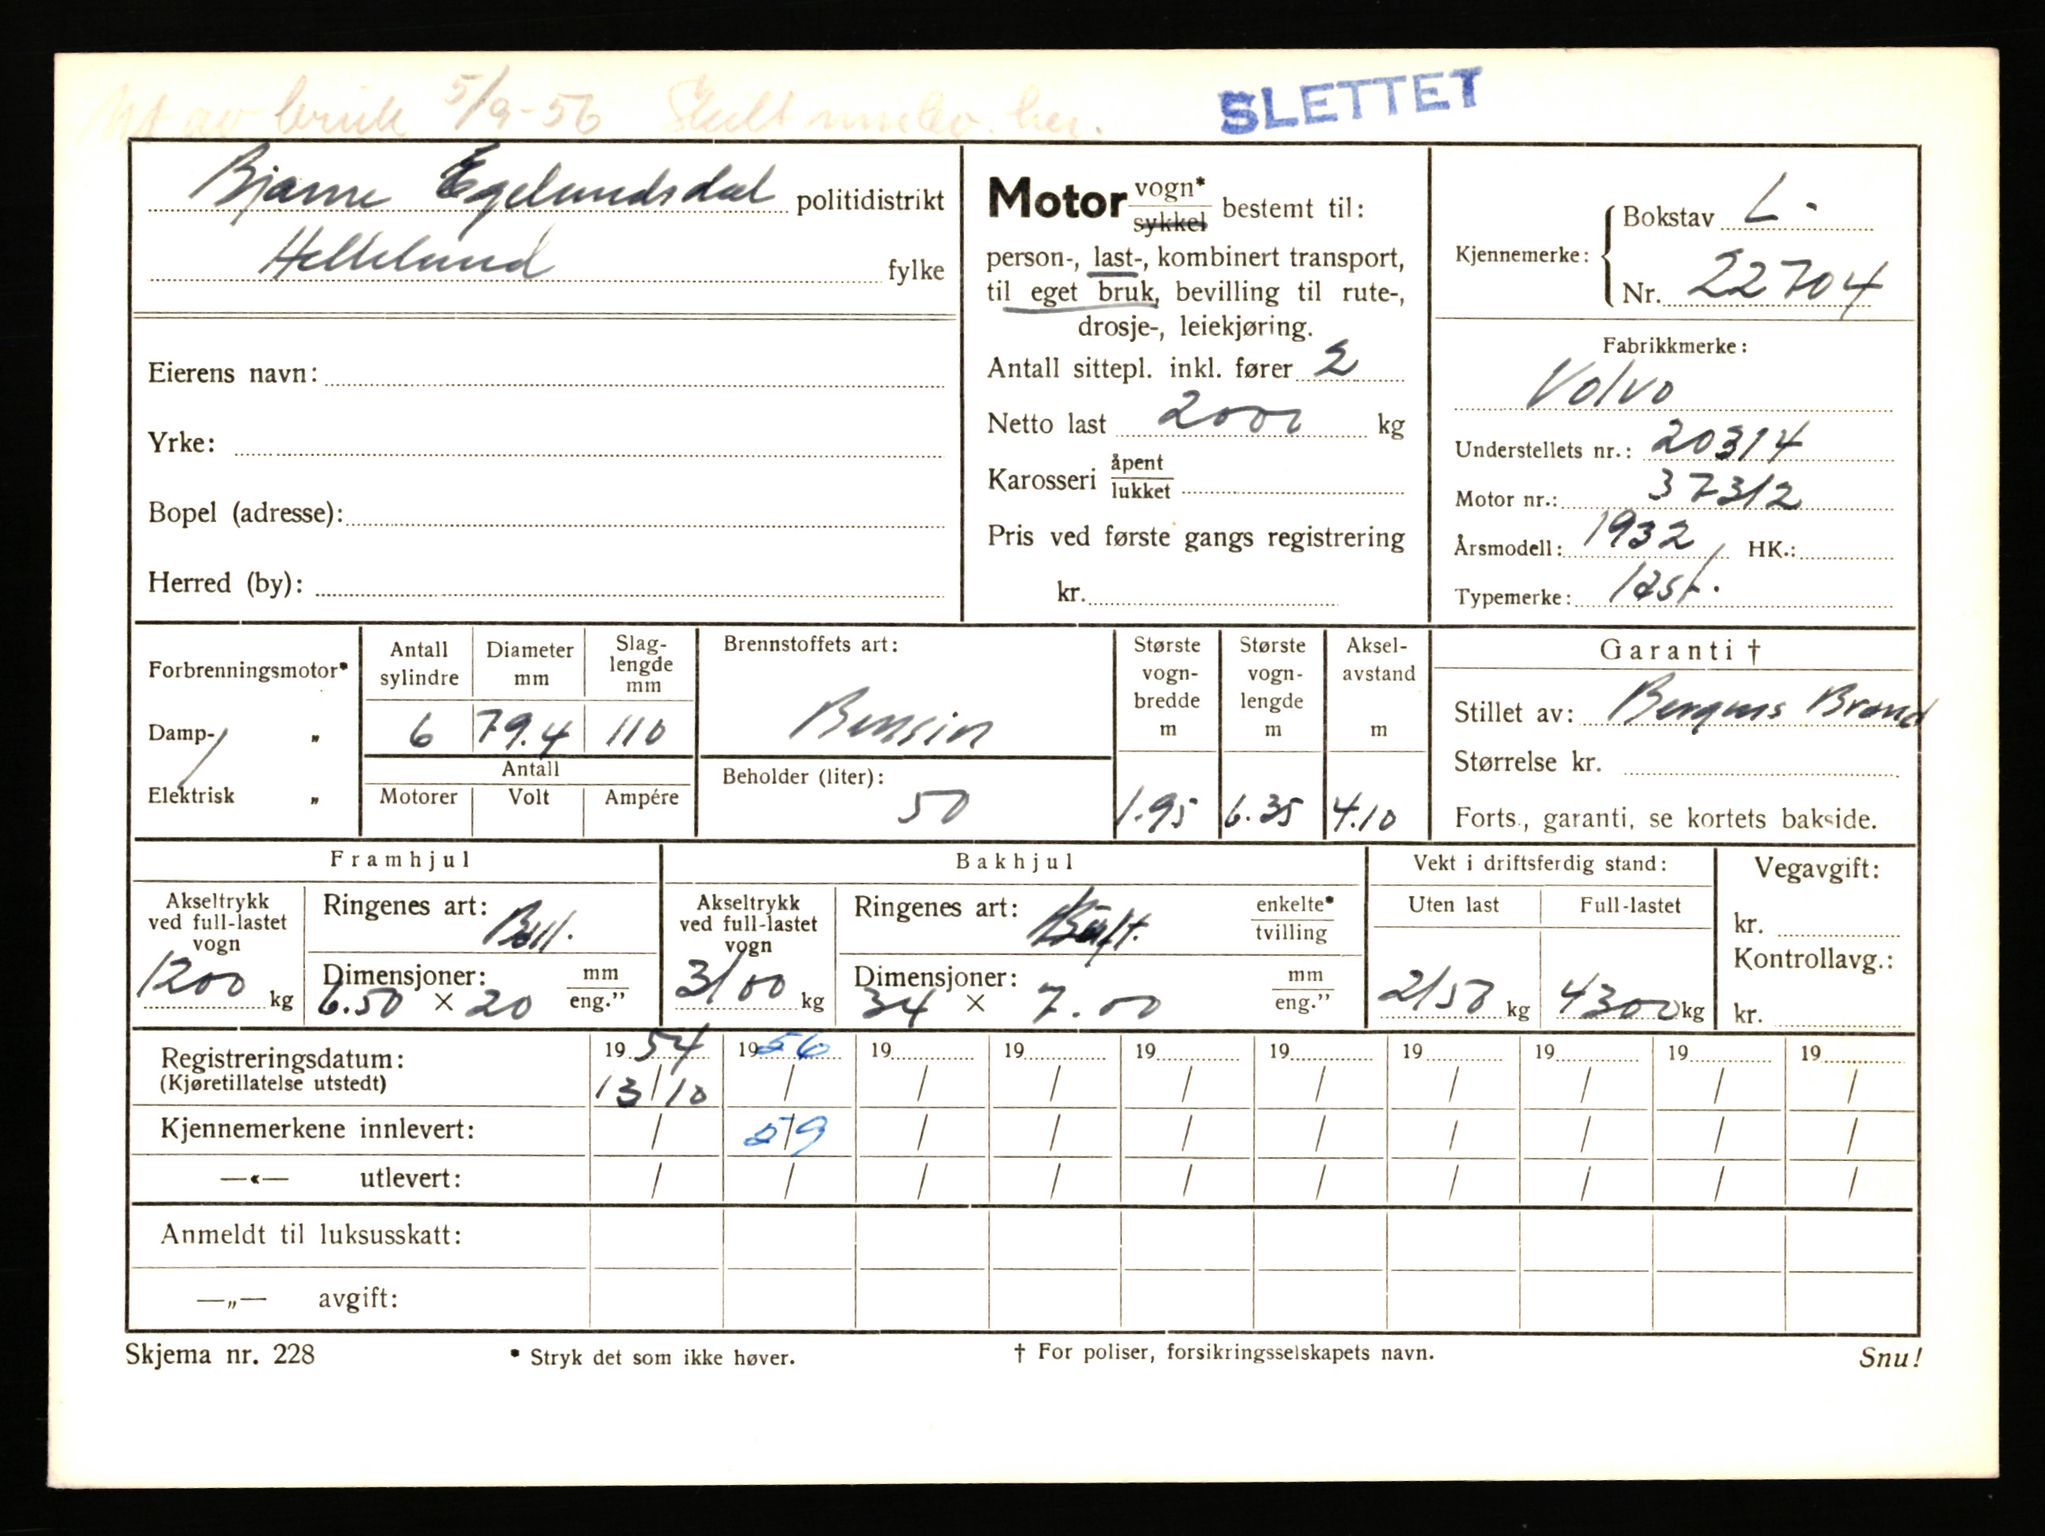 Ut av bruk 5/9-56 Skilt innlev. her.
SLETTET
Bjarne Egelundsdal politidistrikt
Hellelund fylke
Eierens navn:
Yrke:
Bopel (adresse):
Herred (by):
Motor vogn* sykkel bestemt til:
person-, last-, kombinert transport,
til eget bruk, bevilling til rute-,
drosje-, leiekjøring.
Antall sittepl. inkl. fører 2
Netto last 2000 kg
Karosseri åpent lukket
Pris ved første gangs registrering
kr.
Kjennemerke: Bokstav L.
Nr. 22704
Fabrikkmerke:
Volvo
Understellets nr.: 20314
Motor nr.: 37312
Årsmodell: 1932 HK.:
Typemerke: last.
Forbrenningsmotor*
Damp- „
Elektrisk „
Antall sylindre Diameter mm Slag-lengde mm
6 79.4 110
Antall
Motorer Volt Ampére
Brennstoffets art:
Bensin
Beholder (liter):
50
Største vogn-bredde m Største vogn-lengde m Aksel-avstand m
1.95 6.35 4.10
Garanti †
Stillet av: Bergens Brand
Størrelse kr.
Forts., garanti, se kortets bakside.
Framhjul
Akseltrykk ved full-lastet vogn
1200 kg
Ringenes art:
Dimensjoner: mm eng."
6.50 × 20
Bakhjul
Akseltrykk ved full-lastet vogn
3100 kg
Ringenes art: enkelte* tvilling
Dimensjoner: mm eng."
34 × 7.00
Vekt i driftsferdig stand:
Uten last Full-lastet
2150 kg 4300 kg
Vegavgift:
kr.
Kontrollavg.:
kr.
Registreringsdatum: 19 54 19 56 19 19 19 19 19 19 19 19
(Kjøretillatelse utstedt) 13/10 / / / / / / / / /
Kjennemerkene innlevert: / 5/9 / / / / / / / /
—«— utlevert: / / / / / / / / / /
Anmeldt til luksusskatt:
—„— avgift:
Skjema nr. 228 * Stryk det som ikke høver. † For poliser, forsikringsselskapets navn. Snu!